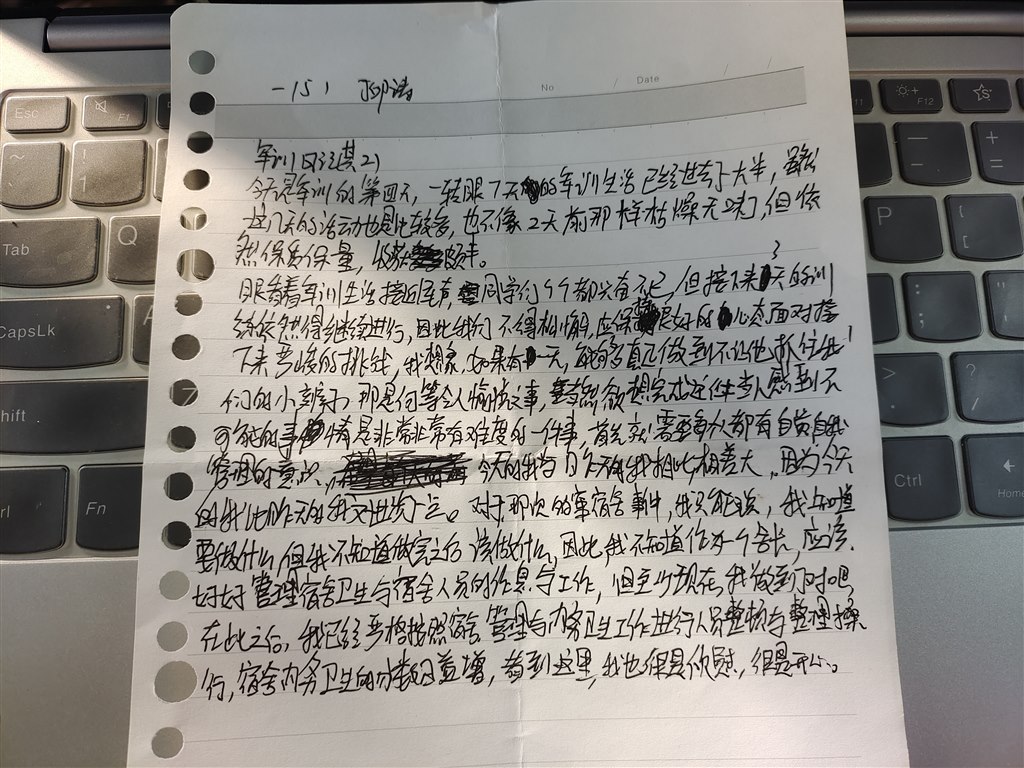 一151
No / Date / /
军训日记其2)
今天是军训的第四天,一转眼7天的军训生活已经过去了大半,虽然
这几天的活动也是比较多,也不像2天前那样枯燥无味,但依
然保质保量,收获颇丰。
眼看着军训生活接近尾声,同学们个个都兴奋不已,但接下来3天的训
练依然得继续进行,因此我们不得松懈,应保持良好的心态面对接
下来考验的挑战,我想象,如果有一天,能够真正做到不让他抓住我
们的小辫子,那是何等令人愉快之事,当然欲想完成这件当人感到不
可能的事情是非常非常有难度的一件事,首先就需要每人都有自觉自我
管理的意识,今天的我与昨天的我相比相差大,因为今天
的我比昨天的我又进步了一点。对于那次的宿舍事件,我只能说,我知道
要做什么,但我不知道做完之后该做什么,因此,我不知道作为一个舍长,应该
好好管理宿舍卫生与宿舍人员的作息与工作,但至少现在,我做到了对吧,
在此之后,我已经严格按照宿舍管理与内务卫生工作进行人员整顿与整理操
行,宿舍内务卫生的情况日益增,看到这里,我也很是欣慰,很是开心。
Esc
F1
F12
Tab
Q
P
CapsLk
A
Shift
Fn
Ctrl
Home